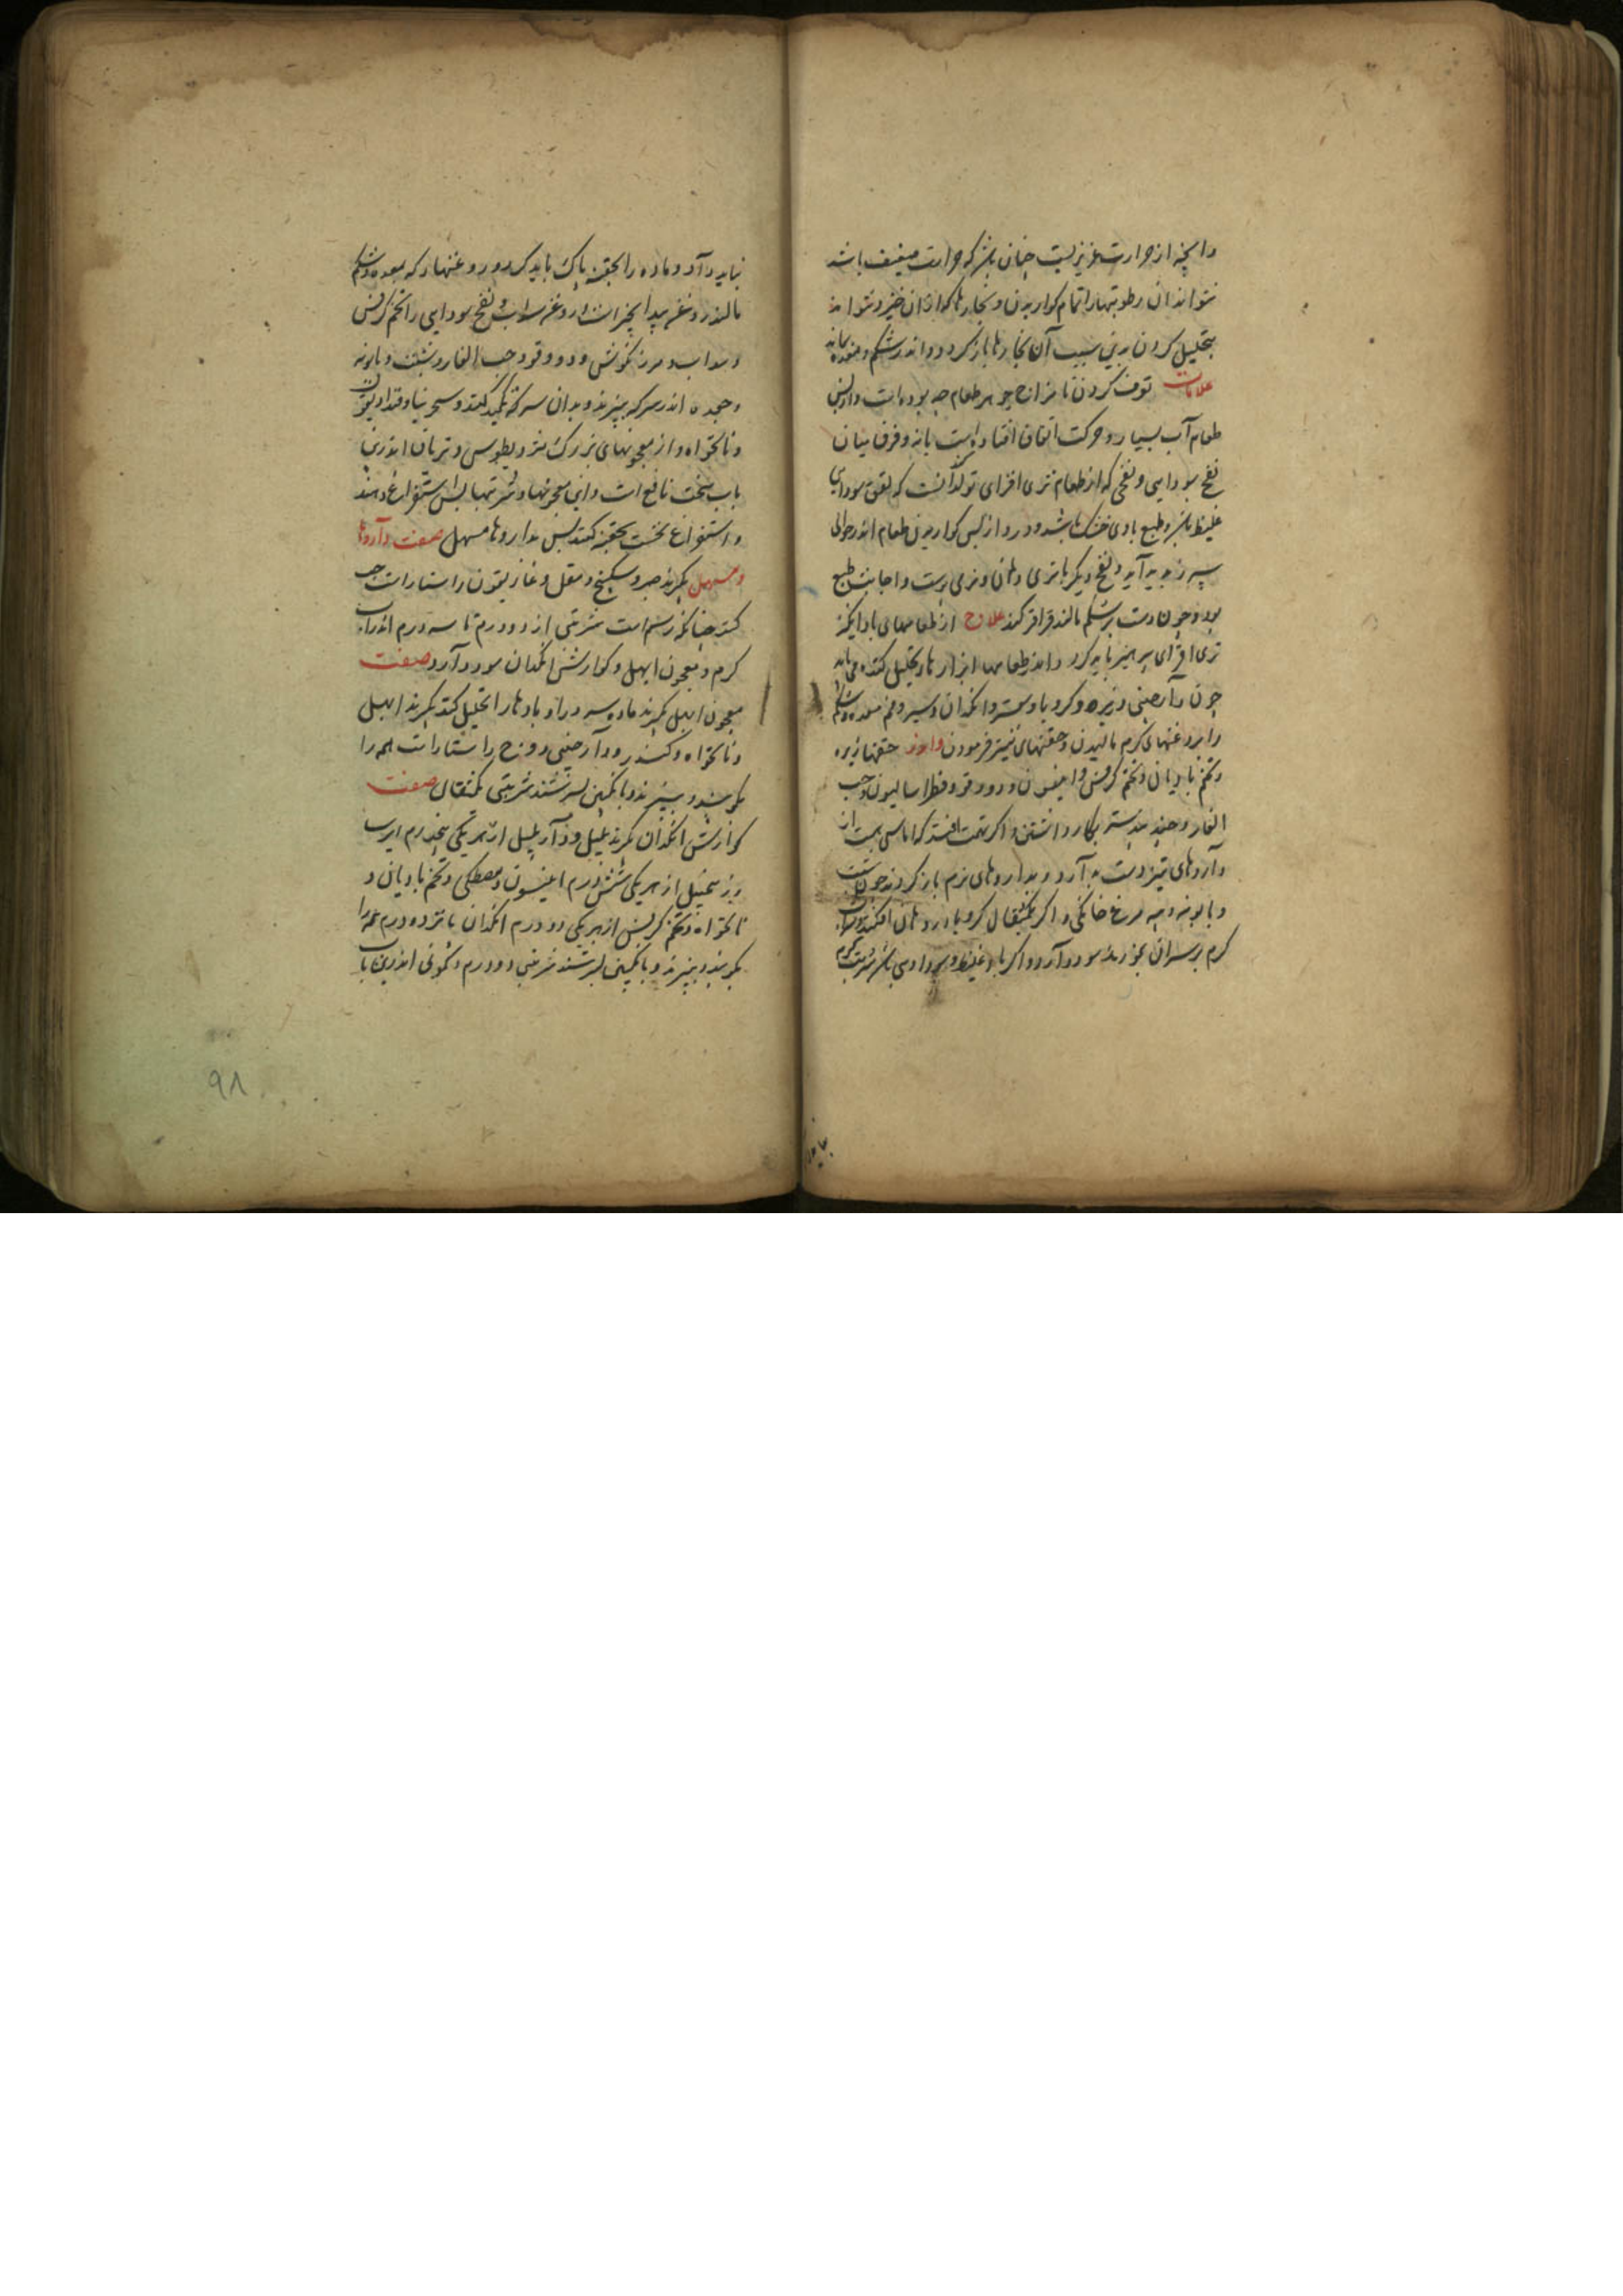 وانچه از حرارت غریزیست چنان باشد که حرارت ضعیف باشد
نتواند ان رطوبتها را تمام کواریدن و بخارها که ازان خیزد نتواند
بتحلیل کردن بدین سبب آن بخارها باز کردد و اندر شکم و معده بماند
علامات توقف کردن تا مزاج جوهر طعام چه بوده است و از پس
طعام آب بسیار و حرکت اتفاق افتاده است یا نه و فرق میان
نفخ سودایی و نفخی که از طعام تری افزای تولد کند آنست که نفخ سودایی
غلیظ باشد و طبع بادی خشک باشد و درد از پس کواریدن طعام اندر حوالی
سپرز پدید آید و نفخ دیکر با تری دهان و نرمی پوست و اجابت طبع
بود و چون دست بر شکم مالند قراقر کند علاج از طعامهای باد انکیز
تری افزای پرهیز باید کرد و اندر طعامها ابزارها و تحلیل کننده می باید
چون دارچینی و زیره و کرویا و سعتر و انکدان و سیر و فم معده و شکم
را بروغنهای کرم مالیدن و حقنهای تیز فرمودن و اندر حقنها زیره
و تخم بادیان و تخم کرفس و انیسون و دوقو و فطراسالیون و حب
الغار و جند بیدستر بکار داشتن و اکر تهمت افتد که اماسی هست از
داروهای تیز دست بدارد و بداروهای نرم باز کردند چون شبت
و بابونه و پیه مرغ خانکی و اکر یکمثقال کرویا در دهان افکند و آب
کرم بر سر ان بخورند سود دارد و اکر باد غلیظ و سودایی باشد شربت کرم
نباید داد و ماده را بحقنه پاک باید کرد و روغنها که بمعده و شکم
مالند روغن بید انجیر است و روغن سداب و نفخ سودایی را تخم کرفس
و سداب و مرزنکوش و دوقو و حب الغار و شبت و بابونه
و جعده اندر سرکه بپزند و بدان سرکه تکمید کنند و سجزنیا و قنداریقون
و نانخواه و از معجونهای بزرک مثرودیطوس و تریاق اندرین
باب سخت نافع است و این معجونها و شربتها پس از استفراغ دهند
و استفراغ نخست بحقنه کنند پس بداروها مسهل صفت داروها
و مسهل بکیرند صبر و سکبینج و مقل و غاریقون راستاراست حب
کنند چنانکه رسم است شربتی از دو درم تا سه درم اندر آب
کرم و معجون ابهل و کوارشن انکدان سود دارد صفت
معجون ابهل بکیرند ماده سپرز را و بادها را تحلیل کند بکیرند ابهل
و نانخواه و کندر و دارچینی و وج راستاراست همه را
بکوبند و ببیزند و با نکبین بسرشند شربتی یکمثقال صفت
کوارشن انکدان بکیرند پلپل و دار پلپل از هر یکی پنجدرم ایرسا
و زنجبیل از هر یکی شش درم انیسون و مصطکی و تخم بادیان و
نانخواه و تخم کرفس از هر یکی دو درم انکدان پانزده درم همه را
بکوبند و ببیزند و با نکبین بسرشند شربتی دو درم و کمونی اندرین باب
۹۸